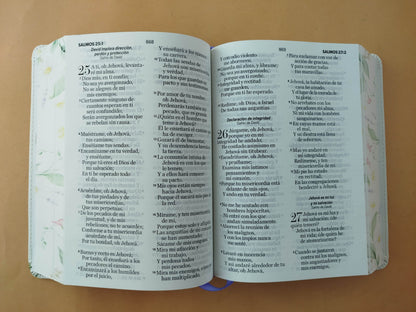 SALMOS 25:1
868
David implora dirección,
perdón y protección
Salmo de David.
25 A ti, oh Jehová, levantaré
mi alma.
Dios mío, en ti confío;
No sea yo avergonzado,
No se alegren de mí
mis enemigos.
Ciertamente ninguno de
cuantos esperan en ti
será confundido;
Serán avergonzados los que
se rebelan sin causa.
Muéstrame, oh Jehová,
tus caminos;
Enséñame tus sendas.
Encamíname en tu verdad,
y enséñame,
Porque tú eres el Dios de
mi salvación;
En ti he esperado
todo el día.
Acuérdate, oh Jehová,
de tus piedades y de
tus misericordias,
Que son perpetuas.
De los pecados de mi
juventud, y de mis
rebeliones, no te acuerdes;
Conforme a tu misericordia
acuérdate de mí,
Por tu bondad, oh Jehová.
Bueno y recto es Jehová;
Por tanto, él enseñará a los
pecadores el camino.
Encaminará a los humildes
por el juicio,
Y enseñará a los mansos
su carrera.
Todas las sendas de
Jehová son misericordia
y verdad,
Para los que guardan su
pacto y sus testimonios.
Por amor de tu nombre,
oh Jehová,
Perdonarás también mi
pecado, que es grande.
¿Quién es el hombre que
teme a Jehová?
Él le enseñará el camino
que ha de escoger.
Gozará él de bienestar,
Y su descendencia heredará
la tierra.
La comunión íntima de
Jehová es con los que
le temen,
Y a ellos hará conocer
su pacto.
Mis ojos están siempre
hacia Jehová,
Porque él sacará mis
pies de la red.
Mírame, y ten misericordia
de mí,
Porque estoy solo y afligido.
Las angustias de mi corazón
se han aumentado;
Sácame de mis congojas.
Mira mi aflicción y
mi trabajo,
Y perdona todos
mis pecados.
Mira mis enemigos,
cómo se han multiplicado,
869
SALMOS 27:3
Y con odio violento
me aborrecen.
Guarda mi alma, y líbrame;
No sea yo avergonzado,
porque en ti confié.
Integridad y rectitud
me guarden,
Porque en ti he esperado.
Redime, oh Dios, a Israel
De todas sus angustias.
Declaración de integridad
Salmo de David.
26 Júzgame, oh Jehová,
porque yo en mi
integridad he andado;
He confiado asimismo en
Jehová sin titubear.
Escudríñame, oh Jehová,
y pruébame;
Examina mis íntimos
pensamientos y
mi corazón.
Porque tu misericordia está
delante de mis ojos,
Y ando en tu verdad.
No me he sentado con
hombres hipócritas,
Ni entré con los que
andan simuladamente.
Aborrecí la reunión de
los malignos,
Y con los impíos nunca
me senté.
Lavaré en inocencia
mis manos,
Y así andaré alrededor de tu
altar, oh Jehová,
Para exclamar con voz de
acción de gracias,
Y para contar todas
tus maravillas.
Jehová, la habitación de tu
casa he amado,
Y el lugar de la morada
de tu gloria.
No arrebates con los
pecadores mi alma,
Ni mi vida con hombres
sanguinarios,
En cuyas manos está
el mal,
Y su diestra está llena
de sobornos.
Mas yo andaré en
mi integridad;
Redímeme, y ten
misericordia de mí.
Mi pie ha estado
en rectitud;
En las congregaciones
bendeciré a Jehová.
Jehová es mi luz
y mi salvación
Salmo de David.
27 Jehová es mi luz y mi
salvación; ¿de
quién temeré?
Jehová es la fortaleza de
mi vida; ¿de quién he
de atemorizarme?
Cuando se juntaron
contra mí los malignos,
mis angustiadores y
mis enemigos,